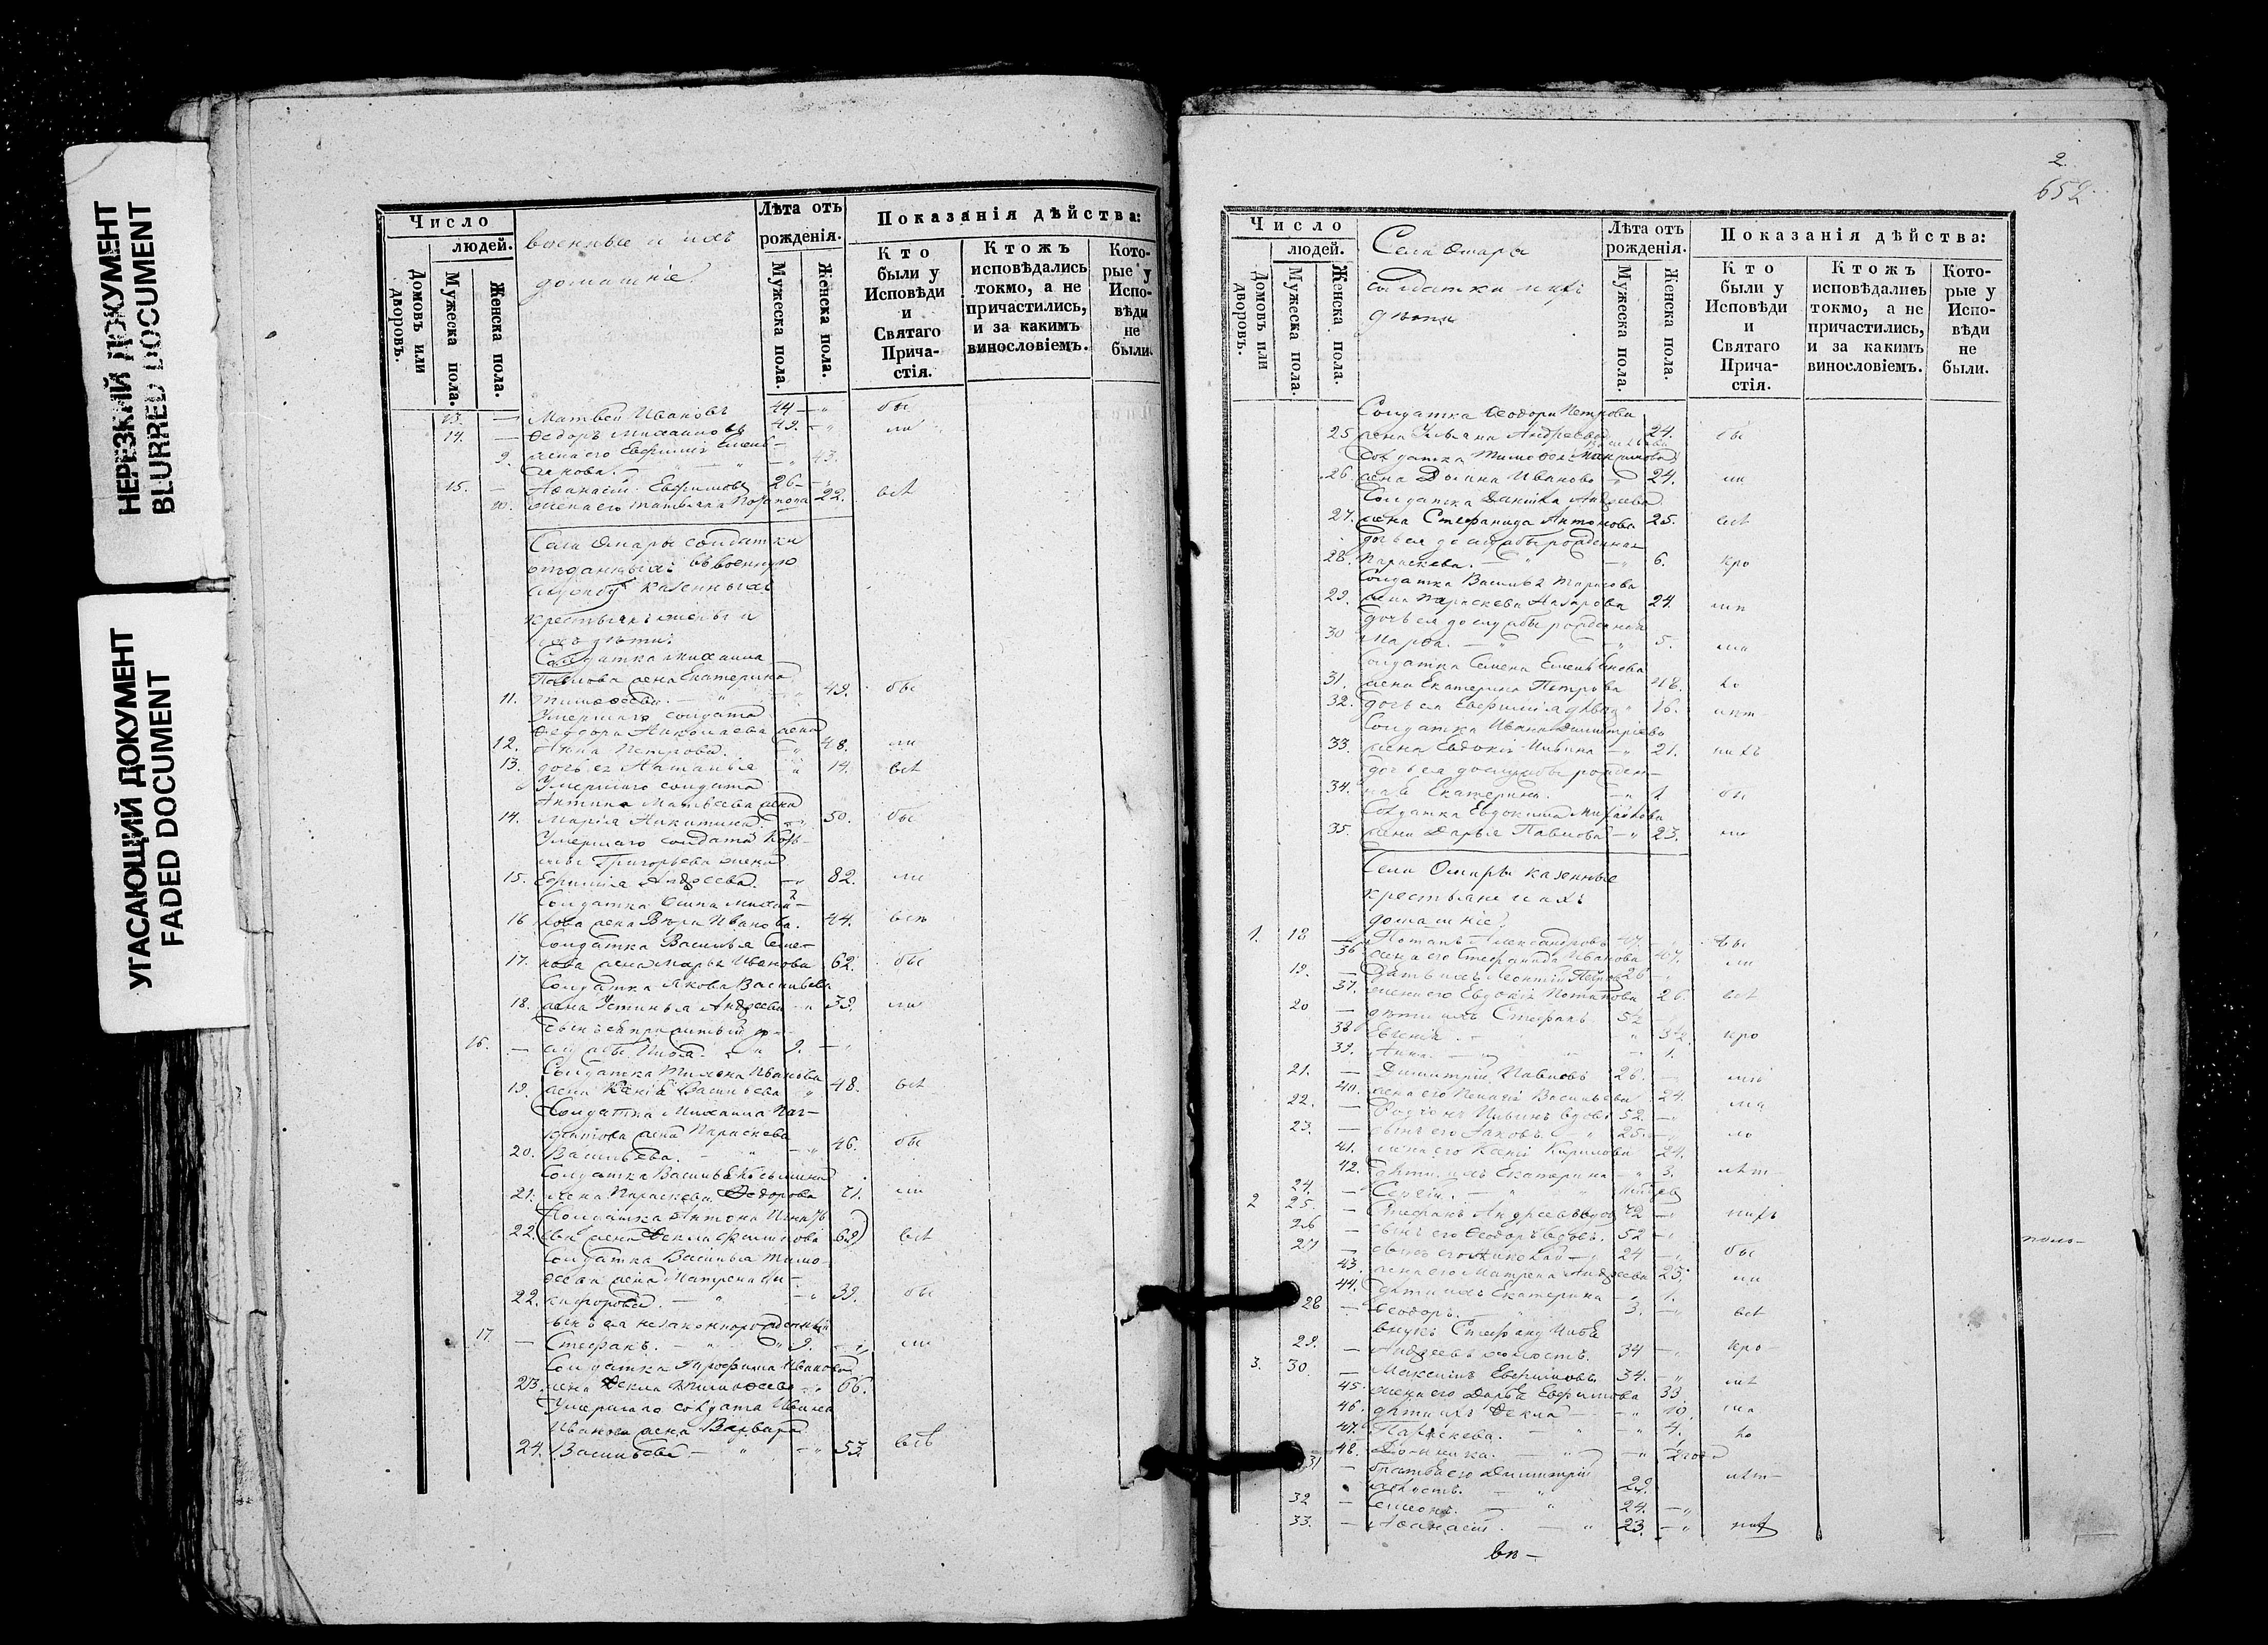 НЕРЕЗКИЙ ДОКУМЕНТ
BLURRED DOCUMENT
УГАСАЮЩИЙ ДОКУМЕНТ
FADED DOCUMENT
Число
людей.
Домовъ или дворовъ.
Мужеска пола.
Женска пола.
военные и ихъ
домашніе.
Лѣта отъ рожденія.
Мужеска пола.
Женска пола.
Показанія дѣйства:
Кто были у Исповѣди и Святаго Причастія.
Ктожъ исповѣдались токмо, а не причастились, и за какимъ винословіемъ.
Которые у Исповѣди не были.
13. — Матвей Ивановъ 44 — „ бы
14. — Ѳедоръ Михаиловъ 49. — „ ли
9. жена его Евфимія Емель
янова. — „ 43.
15. — Аѳанасій Евфимовъ 26 — „
10. жена его Татьяна 22. всѣ
Села Омары солдатки
отданныхъ въ военную
службу казенныхъ
крестьянъ жены и
ихъ дѣти:
Солдатка Михаила
Павлова жена Екатерина
11. Тимоѳеева. — „ 49. бы
Умершаго солдата
Ѳеодора Николаева жена
12. Анна Петрова. — „ 48. ли
13. дочь ея Наталья — „ 14. всѣ
Умершаго солдата
Антипа Матвѣева жена
14. Марія Никитина. — „ 50. бы
Умершаго солдата Козь
мы Григорьева жена
15. Евфимія Андреева. — „ 82. ли
Солдатка Осипа Михаи-
16 лова жена Вѣра Иванова. 44. всѣ
Солдатка Василья Семе-
17. нова жена Марья Иванова 62. бы
Солдатка Якова Васильева
18. жена Устинья Андреева — „ 39. ли
16. — службы 9. — „
Солдатка Тихона Иванова
19. жена Ксенія Васильева „ 48. всѣ
Солдатка Михаила
жена Параскева
20. Васильева. — „ 46. бы
Солдатка Василья Косьмина
21. жена Параскева Ѳедорова 71. ли
Солдатка Антона Игнатъ
22. ева жена Ѳекла Филипова 69 всѣ
Солдатка Василья Тимо-
ѳеева жена Матрена Ни-
22. кифорова. — „ — „ 39. бы
сынъ ея незаконнорожденный
17. — Стефанъ. — „ 9. — „ ли
Солдатка Трофима Иванова
23. жена Ѳекла Тимоѳеева — „ 66.
Умершаго солдата Ивана
Иванова жена Варвара
24. Васильева — „ — „ 53. всѣ
2.
652
Число
людей.
Домовъ или дворовъ.
Мужеска пола.
Женска пола.
Села Омары
солдатки и ихъ
дѣти
Лѣта отъ рожденія.
Мужеска пола.
Женска пола.
Показанія дѣйства:
Кто были у Исповѣди и Святаго Причастія.
Ктожъ исповѣдались токмо, а не причастились, и за какимъ винословіемъ.
Которые у Исповѣди не были.
Солдатка Ѳеодора Петрова
25 жена Ульяна Андреева 24. бы
Солдатка Тимоѳея
26. жена Домна Иванова — „ 24. ли
Солдатка Данила Андреева
27. жена Стефанида Антонова 25. всѣ
дочь ея до службы рожденная
28. Параскева. — „ — „ 6. кро
Солдатка Василья Тарасова
29. жена Параскева Назарова 24.
дочь ея до службы рожденная
30 Марѳа. — „ — „ 5. ма
Солдатка Семена Емельянова
31. жена Екатерина Петрова 48. ло
32. дочь ея Евфимія дѣвка „ 16. лѣт-
Солдатка Ивана Димитріева
33. жена Евдокія Ильина — „ 21. нихъ
дочь ея до службы рожден-
34. ная Екатерина. — „ 1 бы
Солдатка Евдокима Михайлова
35. жена Дарья Павлова — „ 23. ли
Села Омары казенные
крестьяне и ихъ
домашніе:
1. 18 — Потапъ Александровъ 47. — бы
36 жена его Стефанида Иванова 47. ли
19. — зять ихъ Леонтій Петровъ 26 — „
37. жена его Евдокія Потапова 26. всѣ
20 — дѣти ихъ Стефанъ 5½
38 Евгенія. — „ 3½ кро
39. Анна. — „ — „ 1.
21. — Димитрій Павловъ 26. —
40. жена его Пелагія Васильева 24. ма
22. — Родіонъ Ильинъ вдовъ 52. — „
23. — сынъ его Яковъ. „ 25. — „ ло
41. жена его Ксенія Кирилова 24.
42. дѣти ихъ Екатерина — „ 3. лѣт-
24. — Сергій. — „
2 25. — Стефанъ Андреевъ вдовъ 72 — „ нихъ
26 — сынъ его Ѳеодоръ вдовъ. 52 — „
27 — сынъ его Николай — „ 24 — „ бы
43. жена его Матрена Андреева 25. ли
44. дѣти ихъ Екатерина — „ 1.
28 — Ѳеодоръ. — „ 3. — „ всѣ
внукъ Стефану Илья
29. — Андреевъ холостъ. 34 — „ кро-
3. 30. — Максимъ Евфимовъ 34. — „
45. жена его Дарья Евфимова 33. ма
46. дѣти ихъ Ѳекла — — „ 10.
47. Параскева. — „ — „ 4. ло
48. Домника. — „ — „ ½ года
31 — братья его Димитрій лѣт-
холостъ. — „ 29.
32 — Симеонъ. — „ 24. — „
33. — Аѳанасій. — „ 23. — „ нихъ